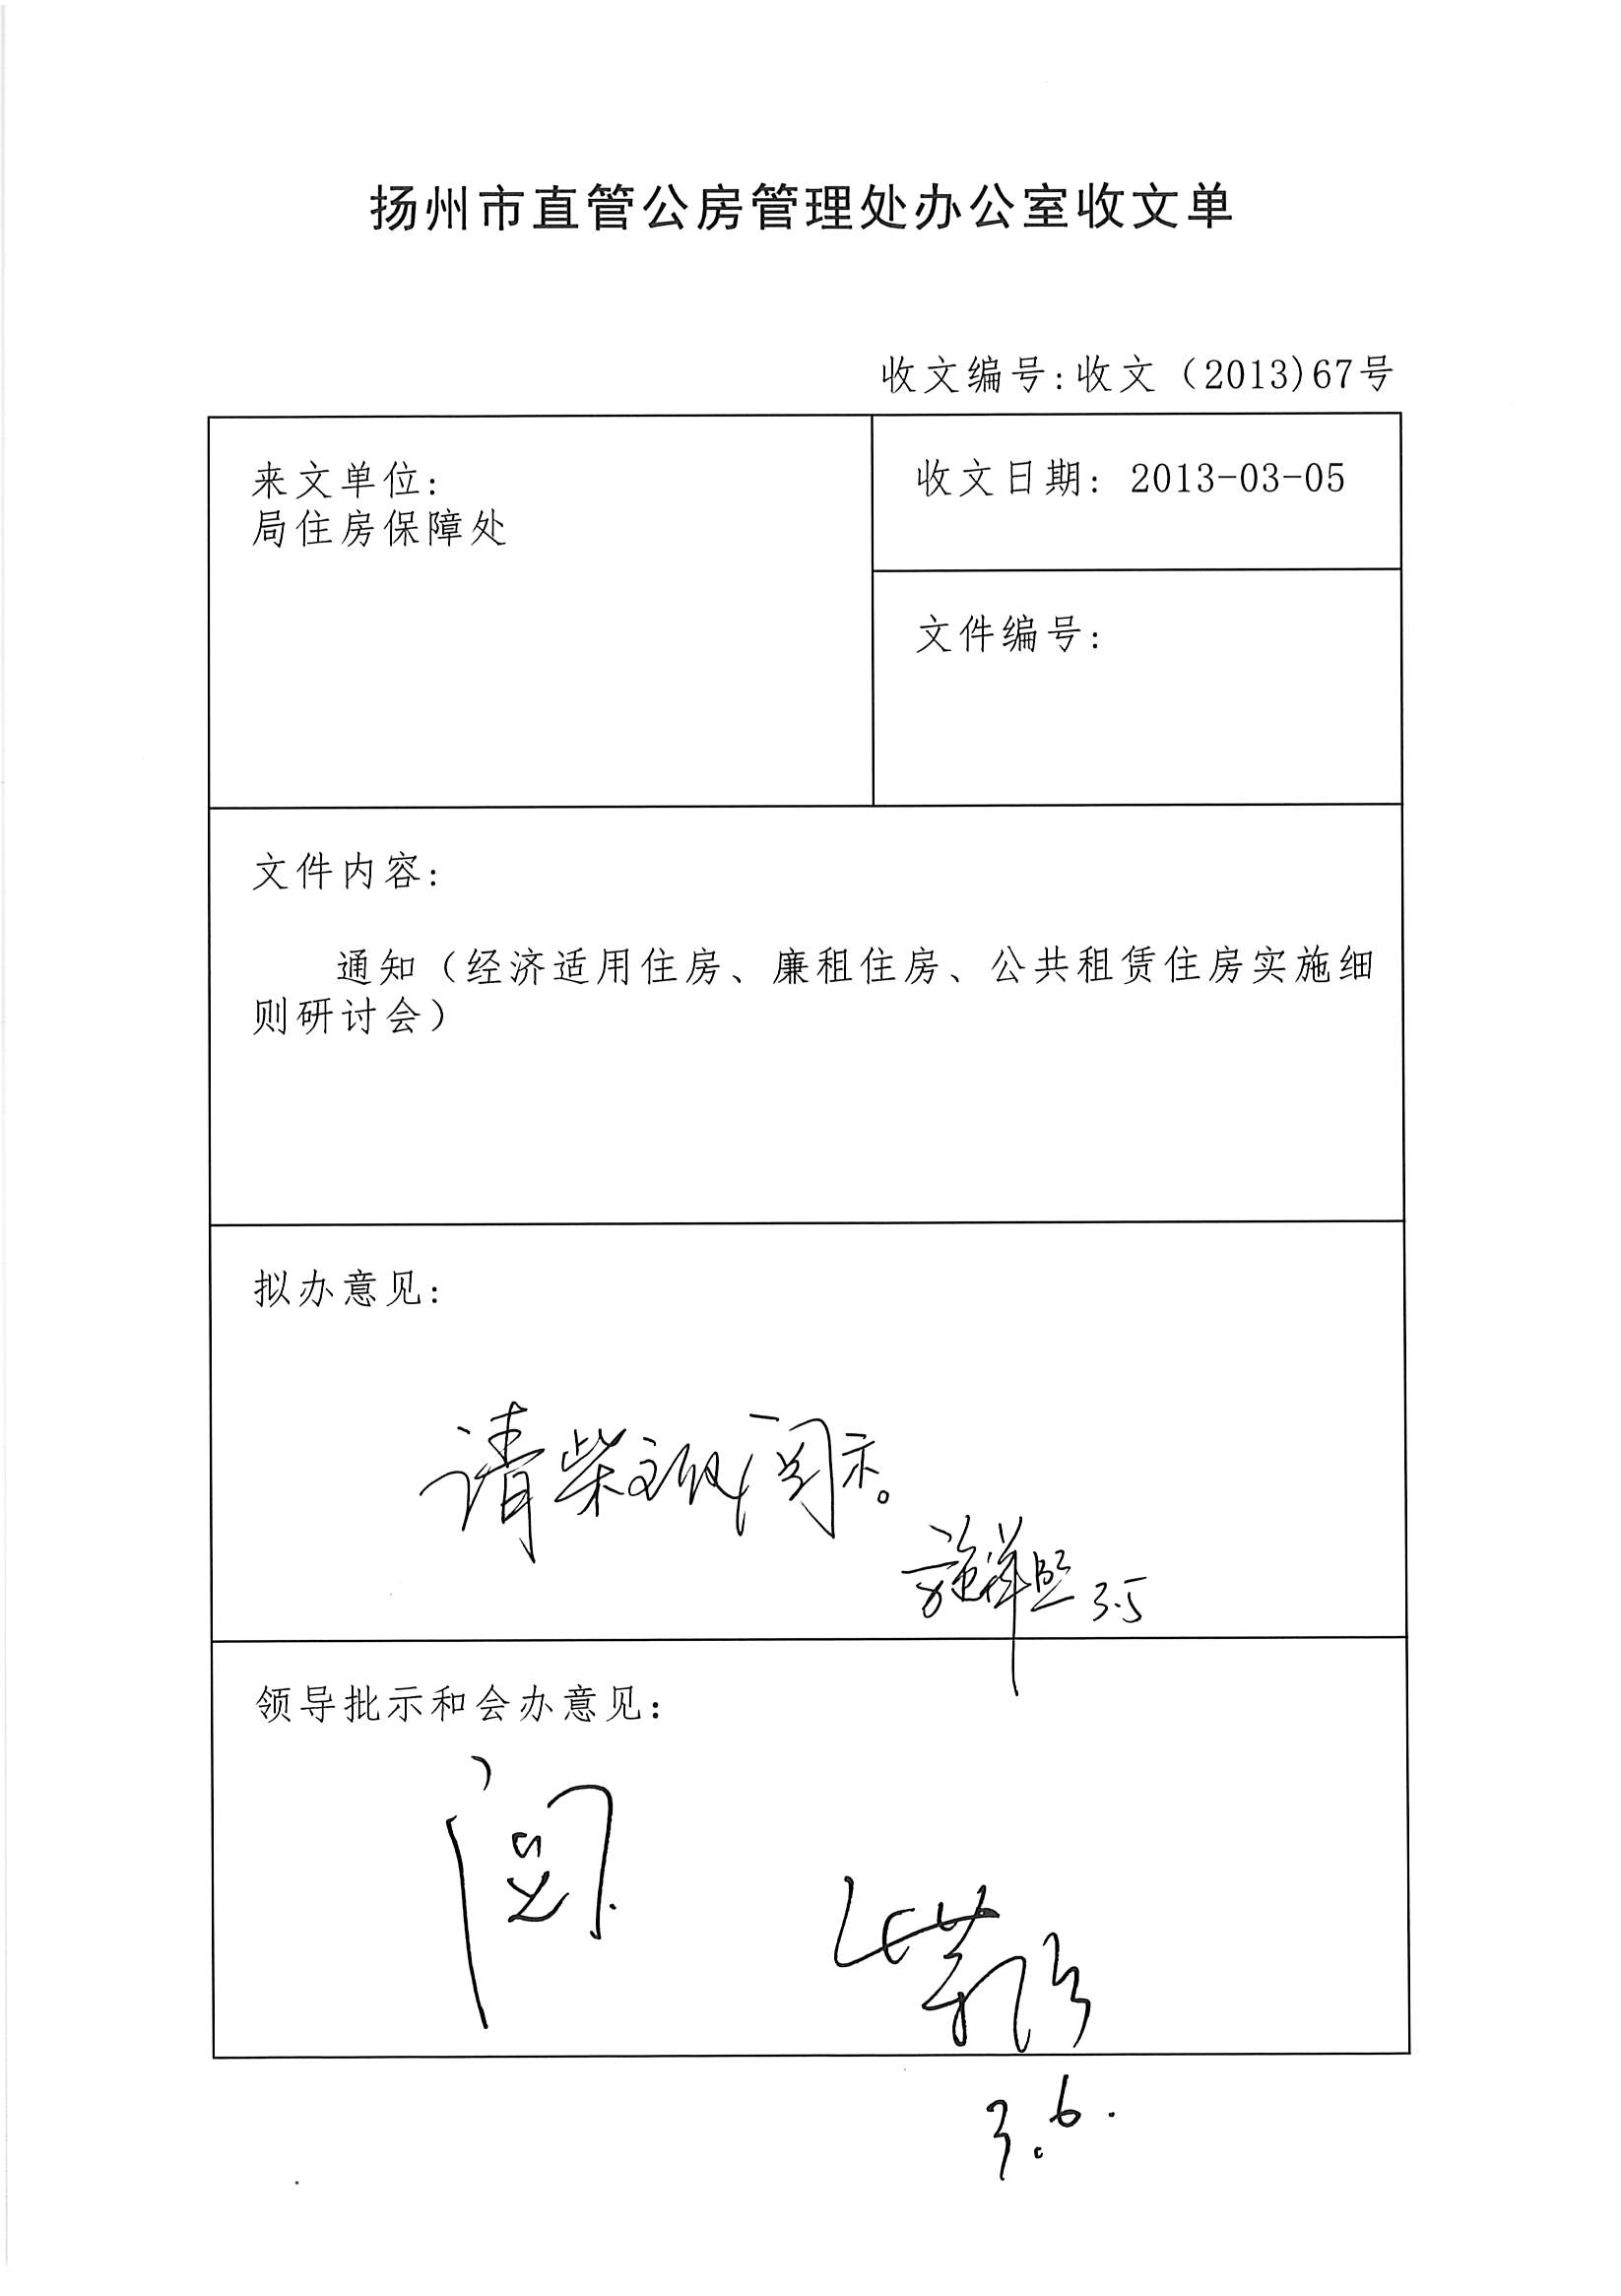 扬州市直管公房管理处办公室收文单
收文编号:收文（2013)67号
来文单位:
局住房保障处
收文日期: 2013-03-05
文件编号:
文件内容:
通知（经济适用住房、廉租住房、公共租赁住房实施细
则研讨会）
拟办意见:
请柴 阅示。
施 3.5
领导批示和会办意见:
阅.
柴
3.6.